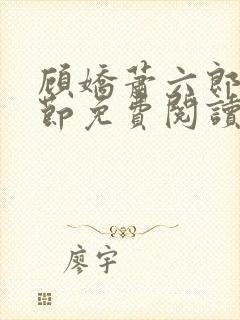 顾嬌蕭六郎
節免費閱讀
廖宇